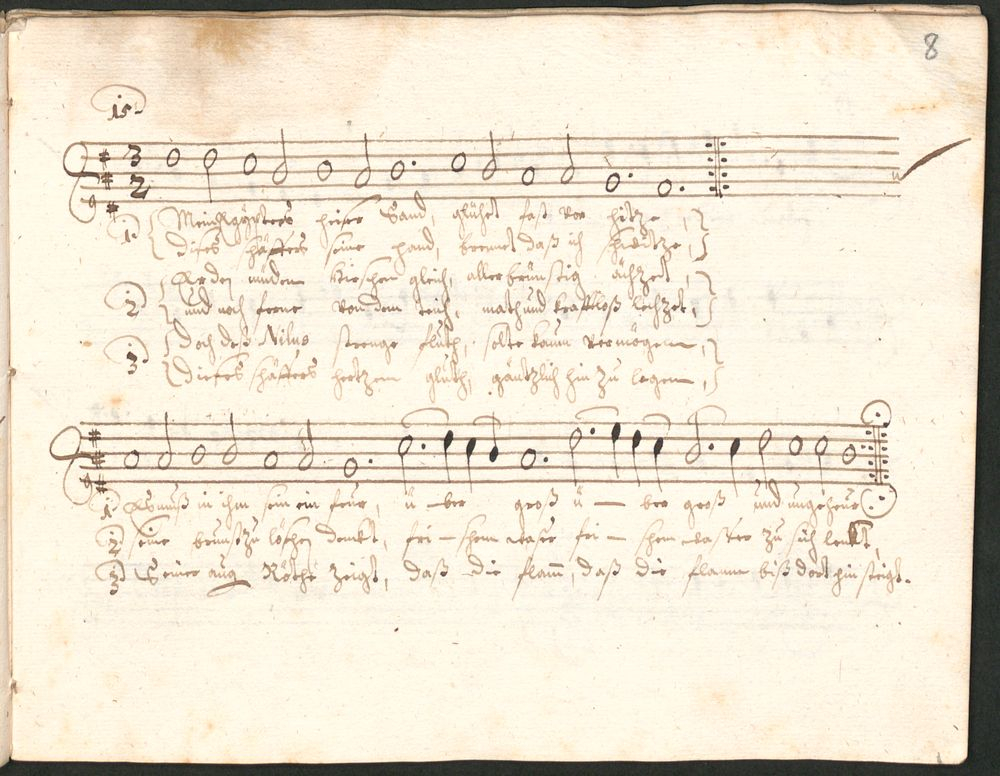 8
15.
3
2
1. Mein Egÿpters heiser Sand, glühet fast vor hitze,
dises schäffers seine hand, brennet daß ich schwitze,
2 Er den müden Hirschen gleich, aller brünstig ächzet,
und noch ferne von dem teich, math und krafftloß lechzet,
3. doch deß Nilus strenge fluth, solte kaum vermögen,
dieses schäffers hertzen gluth, gäntzlich hin zu legen,
1 Es muß in ihm sein ein feur, ü – ber groß ü – ber groß und ungeheur
2 seine brunst zu löschen denckt, fri – schem waser fri – schem wasser zu sich lenkt,
3 Seiner aug Röthe zeigt, daß die flam, daß die flamm biß dort hin steigt.